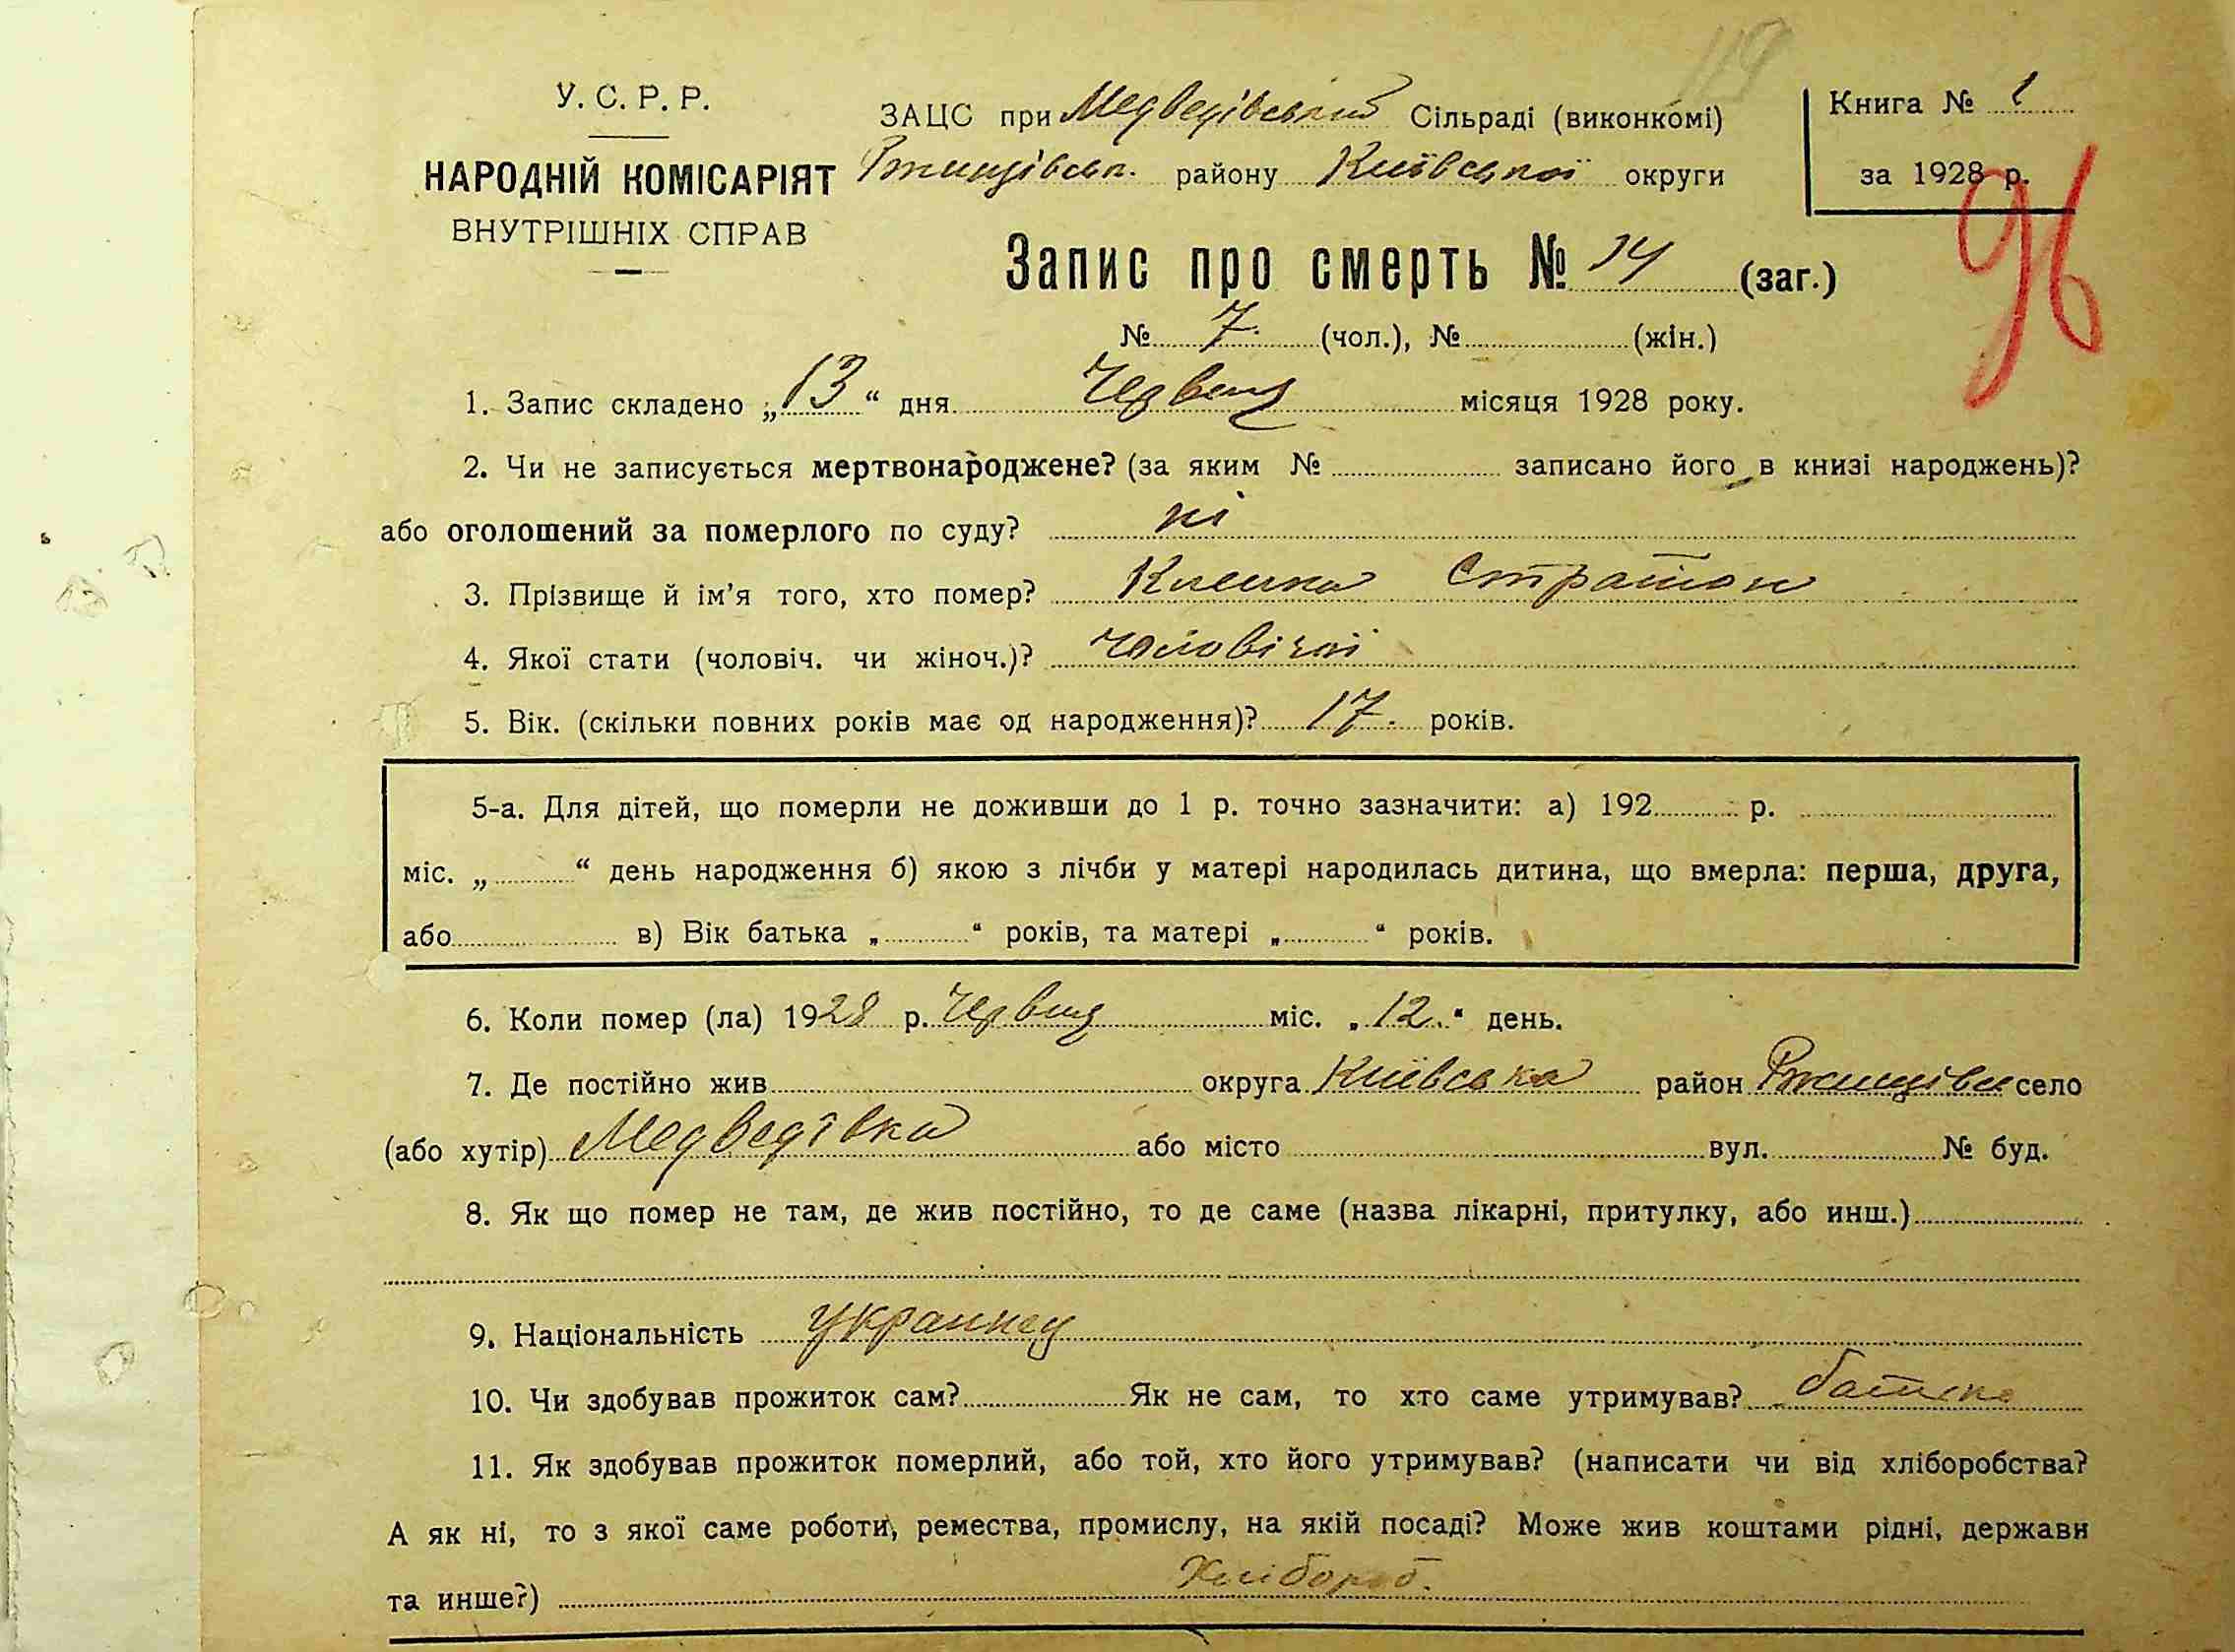 119
У. С. Р. Р.
НАРОДНІЙ КОМІСАРІЯТ
ВНУТРІШНІХ СПРАВ
ЗАЦС при Медведівській Сільраді (виконкомі)
Ржищівськ. району Київської округи
Книга № 1
за 1928 р.
96
Запис про смерть № 14 (заг.)
№ 7 (чол.), № (жін.)
1. Запис складено „13“ дня Червця місяця 1928 року.
2. Чи не записується мертвонароджене? (за яким № записано його в книзі народжень)?
або оголошений за померлого по суду? ні
3. Прізвище й ім’я того, хто помер? Стратон
4. Якої стати (чоловіч. чи жіноч.)? чоловічої
5. Вік. (скільки повних років має од народження)? 17. років.
5-а. Для дітей, що померли не доживши до 1 р. точно зазначити: а) 192 р.
міс. „ “ день народження б) якою з лічби у матері народилась дитина, що вмерла: перша, друга,
або в) Вік батька „ “ років, та матері „ “ років.
6. Коли помер (ла) 1928 р. Червця міс. „12.“ день.
7. Де постійно жив округа Київська район Ржищівськ село
(або хутір) Медведівка або місто вул. № буд.
8. Як що помер не там, де жив постійно, то де саме (назва лікарні, притулку, або инш.)
9. Національність украинец
10. Чи здобував прожиток сам? Як не сам, то хто саме утримував? батько
11. Як здобував прожиток померлий, або той, хто його утримував? (написати чи від хліборобства?
А як ні, то з якої саме роботи, ремества, промислу, на якій посаді? Може жив коштами рідні, держави
та инше?) Хлібороб.